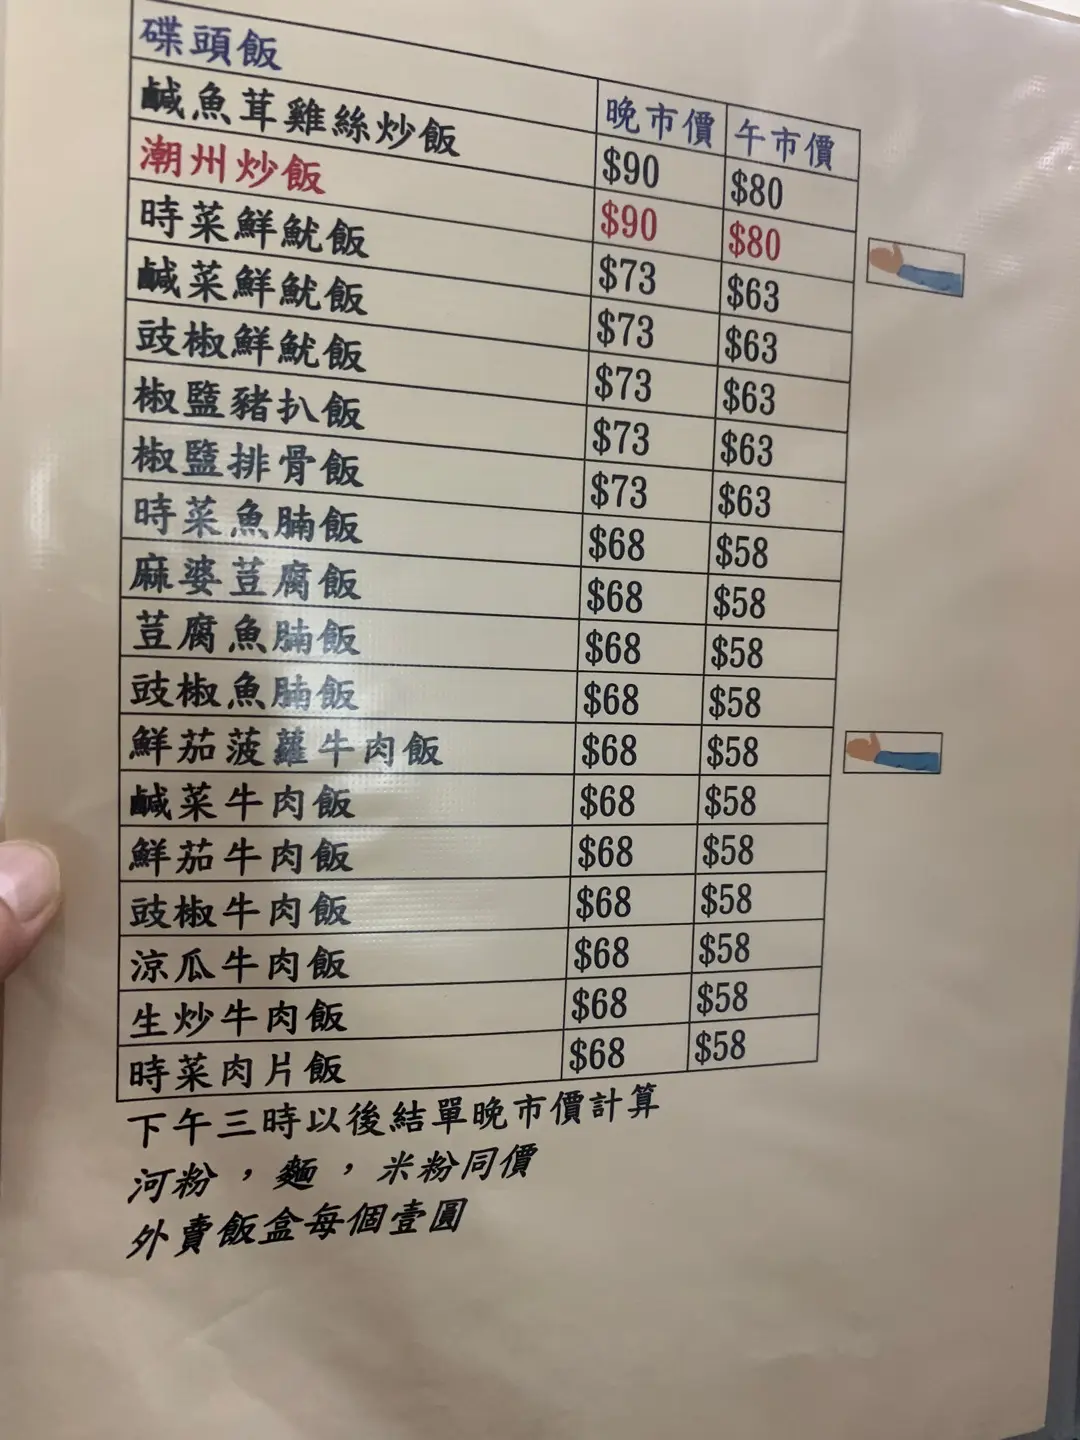 碟頭飯 晚市價 午市價
鹹魚茸雞絲炒飯 $90 $80
潮州炒飯 $90 $80
時菜鮮魷飯 $73 $63
鹹菜鮮魷飯 $73 $63
豉椒鮮魷飯 $73 $63
椒鹽豬扒飯 $73 $63
椒鹽排骨飯 $73 $63
時菜魚腩飯 $68 $58
麻婆荳腐飯 $68 $58
荳腐魚腩飯 $68 $58
豉椒魚腩飯 $68 $58
鮮茄菠蘿牛肉飯 $68 $58
鹹菜牛肉飯 $68 $58
鮮茄牛肉飯 $68 $58
豉椒牛肉飯 $68 $58
涼瓜牛肉飯 $68 $58
生炒牛肉飯 $68 $58
時菜肉片飯 $68 $58
下午三時以後結單晚市價計算
河粉，麵，米粉同價
外賣飯盒每個壹圓